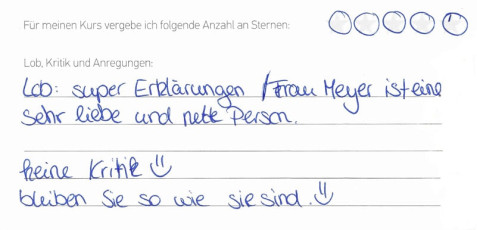 Für meinen Kurs vergebe ich folgende Anzahl an Sternen:
Lob, Kritik und Anregungen:
Lob: super Erklärungen / Frau Meyer ist eine
sehr liebe und nette Person.
keine Kritik
bleiben Sie so wie sie sind.